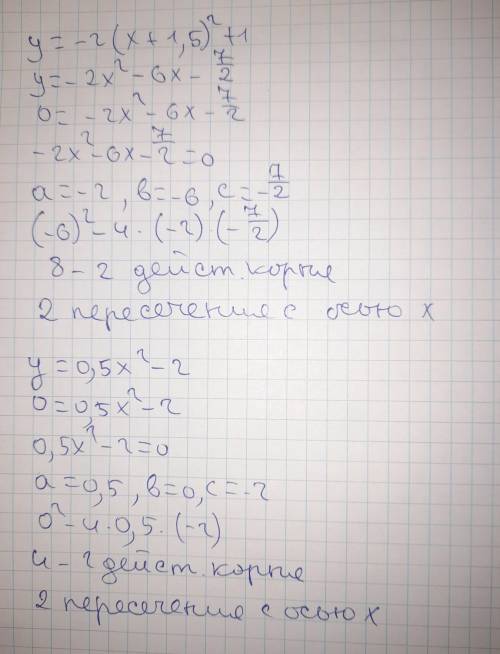 y = -2(x+1,5)²+1
y = -2x²-6x-7/2
0 = -2x²-6x-7/2
-2x²-6x-7/2=0
a=-2, в=-6, c=-7/2
(-6)²-4·(-2)·(-7/2)
8-2 дейст. корня
2 пересечение с осью x
y=0,5x²-2
0=0,5x²-2
0,5x²-2=0
a=0,5, в=0, c=-2
0²-4·0,5·(-2)
4-2 дейст. корня
2 пересечение с осью x